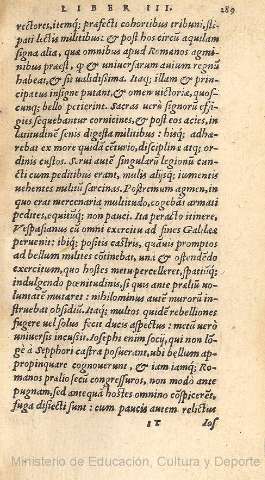 LIBER III. 289
rectores, itemq; præfecti cohortibus tribuni, sti-
pati lectis militibus: & post hos circũ aquilam
signa alia, quæ omnibus apud Romanos agmi-
nibus præest, q̃ & uniuersarum auium regnũ
habeat, & sit ualidissima. Itaq; illam & prin-
cipatus insigne putant, & omen uictoriæ, quos-
cunq; bello petierint. Sacras uerò signorũ effi-
gies sequebantur cornicines, & post eos acies, in
latitudinẽ senis digesta militibus: hisq; adhæ-
rebat ex more quidã cẽturio, disciplinæ atq; or-
dinis custos. Serui autẽ singularũ legionũ cun-
cti cum peditibus erant, mulis alijsq; iumentis
uehentes militũ sarcinas. Postremum agmen, in
quo erat mercenaria multitudo, cogebãt armati
pedites, equitũq; non pauci. Ita peracto itinere,
Vespasianus cũ omni exercitu ad fines Galilææ
peruenit: ibiq; positis castris, quãuis promptos
ad bellum milites cõtinebat, uti & ostendẽdo
exercitum, quo hostes metu percelleret, spatiũq;
indulgendo pœnitudinis, si quis ante præliũ uo-
luntatẽ mutaret: nihilominus autẽ murorũ in-
struebat obsidiũ. Itaq; multos quidẽ rebelliones
fugere uel solus fecit ducis aspectus: metũ uerò
uniuersis incussit. Iosephi enim socij, qui non lõ-
gè à Sepphori castra posuerant, ubi bellum ap-
propinquare cognouerunt, & iam iamq; Ro-
manos prælio secũ congressuros, non modò ante
pugnam, sed antequã hostes omnino cõspicerẽt,
fuga disiecti sunt: cum paucis autem relictus
Ios
Ministerio de Educación, Cultura y Deporte